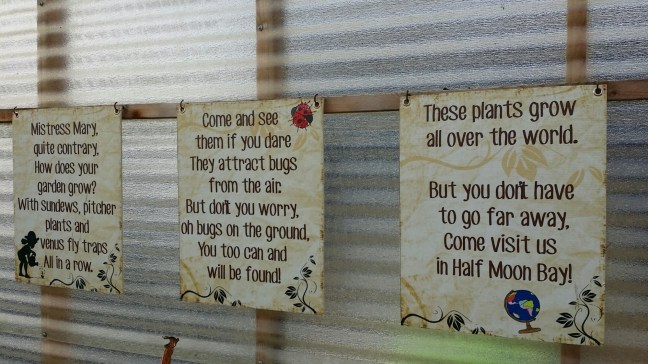 Mistress Mary,
quite contrary,
How does your
garden grow?
With sundews, pitcher
plants and
venus fly traps
All in a row.
Come and see
them if you dare
They attract bugs
from the air.
But don't you worry,
oh bugs on the ground,
You too can and
will be found!
These plants grow
all over the world.
But you don't have
to go far away,
Come visit us
in Half Moon Bay!